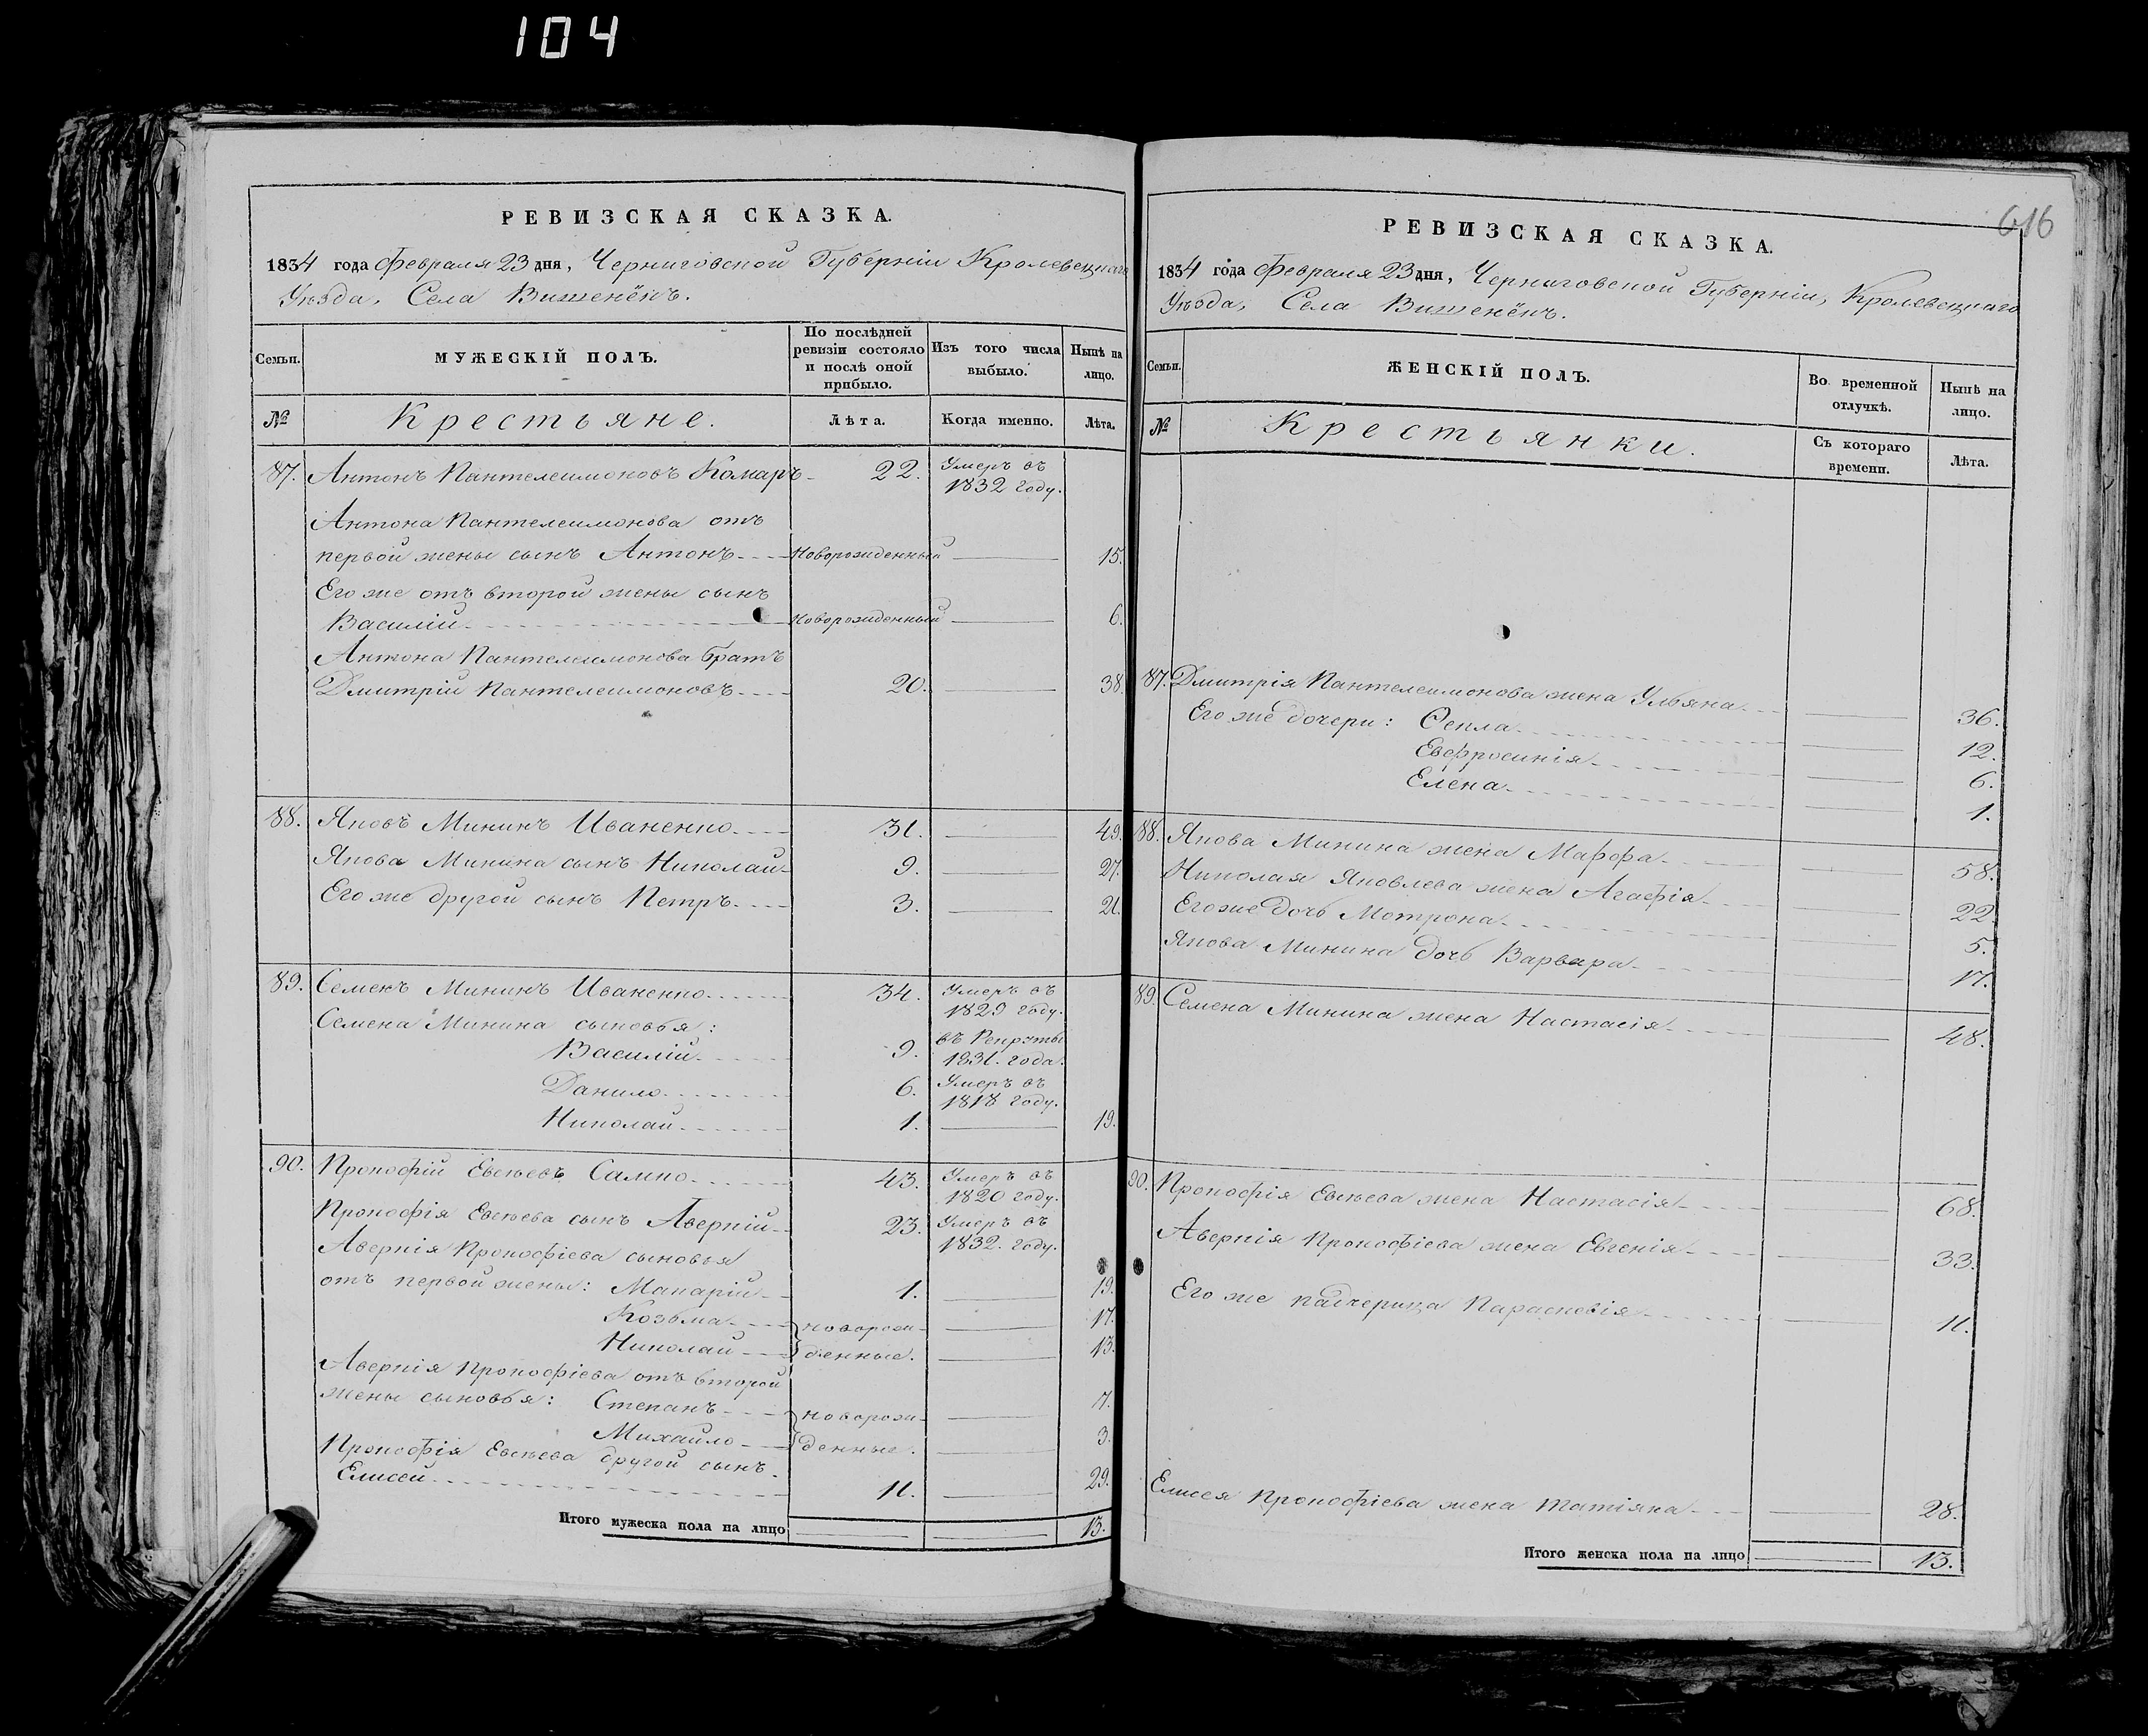 104
РЕВИЗСКАЯ СКАЗКА.
1834 года Февраля 23 дня, Черниговской Губерніи Кролевецкаго
Уѣзда, Села Вишенёкъ.
Семьи.
МУЖЕСКІЙ ПОЛЪ.
По послѣдней ревизіи состояло и послѣ оной прибыло.
Изъ того числа выбыло.
Нынѣ на лицо.
№
Крестьяне.
Лѣта.
Когда именно.
Лѣта.
87. Антонъ Пантелеимоновъ Комаръ 22. Умеръ въ
1832 году.
Антона Пантелеимонова отъ
первой жены сынъ Антонъ Новорожденный 15.
Его же отъ второй жены сынъ
Василій Новорожденный 6.
Антона Пантелеимонова братъ
Дмитрій Пантелеимоновъ 20. 38.
88. Яковъ Мининъ Иваненко 31. 49.
Якова Минина сынъ Николай 9. 27.
Его же другой сынъ Петръ 3. 21.
89. Семенъ Мининъ Иваненко 34. Умеръ въ
1829 году.
Семена Минина сыновья:
Василій 9. въ Рекруты
1831. года.
Данило 6. Умеръ въ
1818 году.
Николай 1. 19.
90. Прокофій Евсѣевъ Сампо 43. Умеръ въ
1820 году.
Прокофія Евсѣева сынъ Аверкій 23. Умеръ въ
1832. году.
Аверкія Прокофіева сыновья
отъ первой жены: Макарій 1. 19.
Козьма новорож- 17.
Николай денные. 13.
Аверкія Прокофіева отъ второй
жены сыновья: Степанъ новорож- 7.
Михайло денные. 3.
Прокофія Евсѣева другой сынъ
Елисей 11. 29.
Итого мужеска пола на лицо 13.
616
РЕВИЗСКАЯ СКАЗКА.
1834 года Февраля 23 дня, Черниговской Губерніи, Кролевецкаго
Уѣзда, Села Вишенёкъ.
Семьи.
ЖЕНСКІЙ ПОЛЪ.
Во временной отлучкѣ.
Нынѣ на лицо.
№
Крестьянки.
Съ котораго времени.
Лѣта.
87. Дмитрія Пантелеимонова жена Ульяна 36.
Его же дочери: Фекла 12.
Евфросинія 6.
Елена 1.
88. Якова Минина жена Марфа 58.
Николая Яковлева жена Агафія 22.
Его же дочь Мотрона 5.
Якова Минина дочь Варвара 17.
89. Семена Минина жена Настасія 48.
90. Прокофія Евсѣева жена Настасія 68.
Аверкія Прокофіева жена Евгенія 33.
Его же падчерица Парасковія 11.
Елисея Прокофіева жена Татіяна 28.
Итого женска пола на лицо 13.